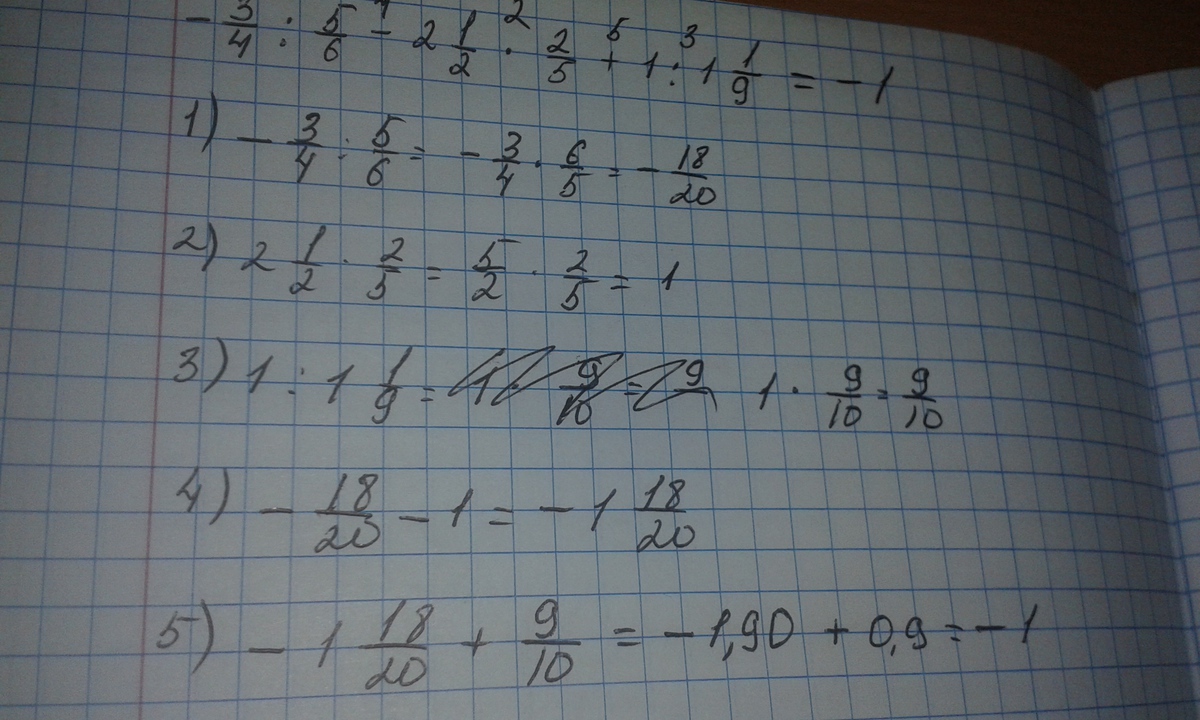 - 3/4 : 5/6 - 2 1/2 · 2/5 + 1 : 1 1/9 = -1
1) - 3/4 : 5/6 = - 3/4 · 6/5 = - 18/20
2) 2 1/2 · 2/5 = 5/2 · 2/5 = 1
3) 1 : 1 1/9 = 1 · 9/10 = 9/10
4) - 18/20 - 1 = - 1 18/20
5) - 1 18/20 + 9/10 = - 1,90 + 0,9 = - 1